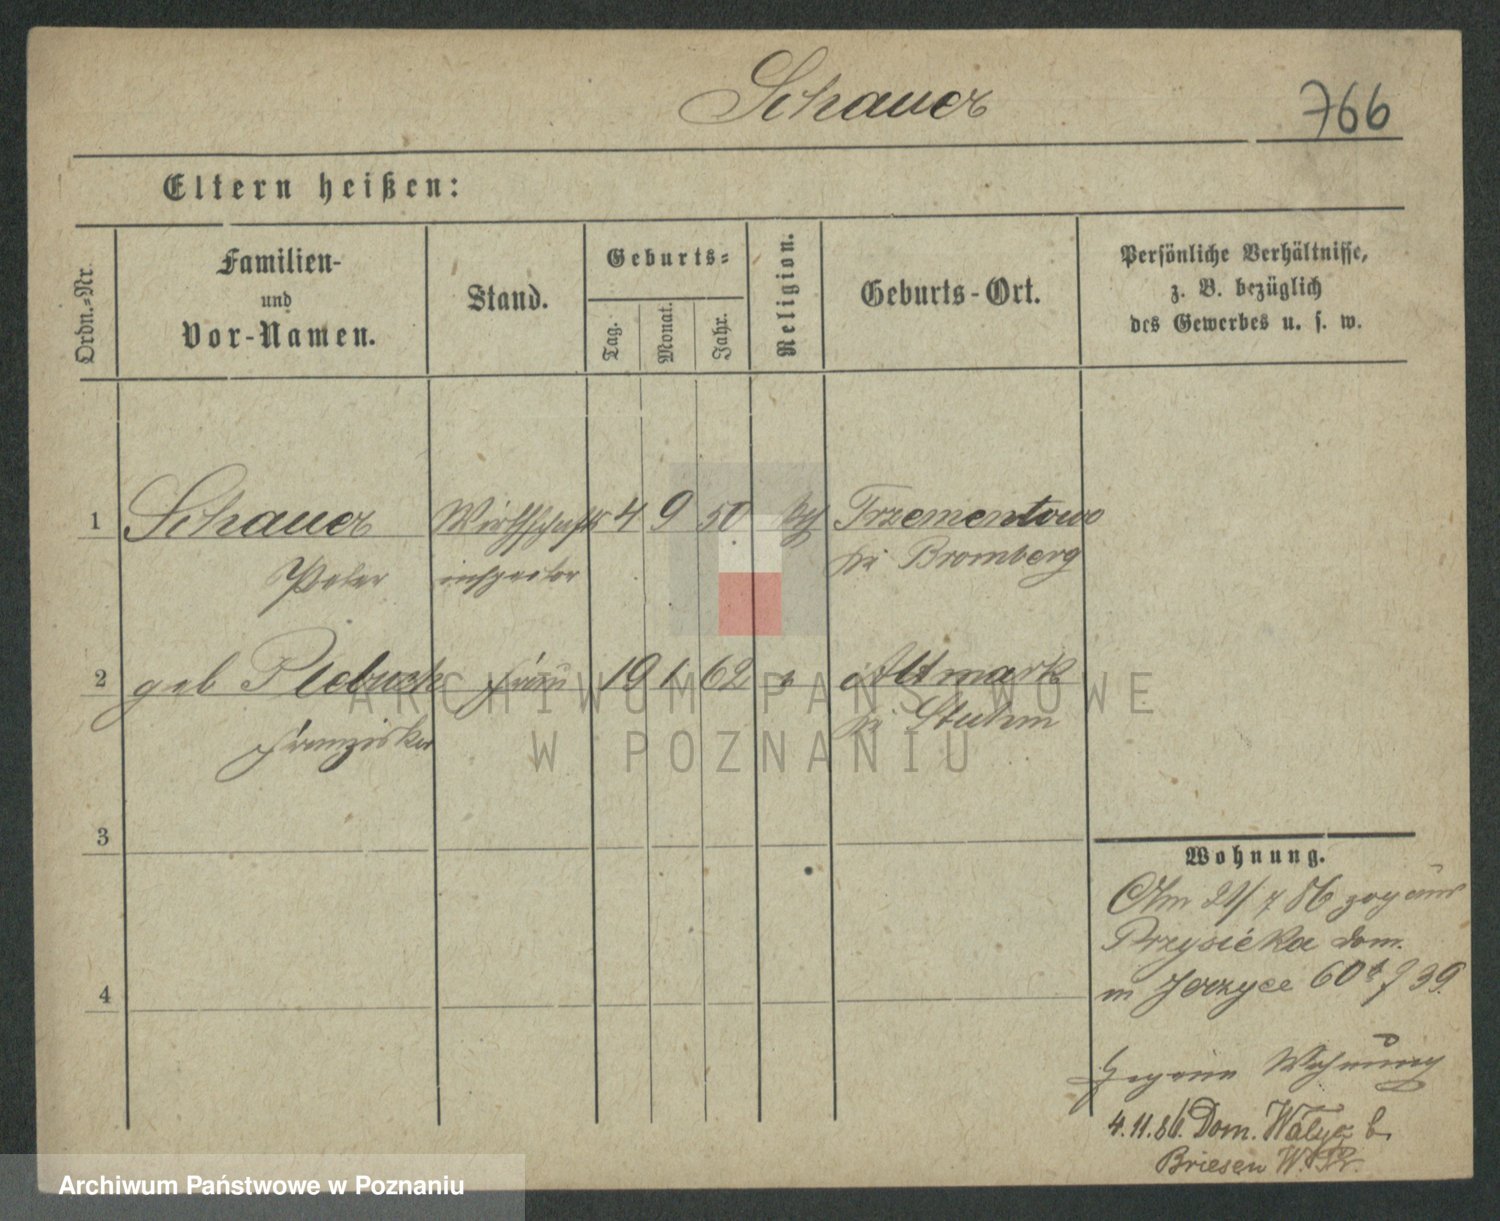 Schauer
766
Eltern heißen:
Ordn.-Nr.
Familien-
und
Vor-Namen.
Stand.
Geburts-
Tag.
Monat.
Jahr.
Religion.
Geburts-Ort.
Persönliche Verhältnisse,
z. B. bezüglich
des Gewerbes u. s. w.
1 Schauer Wirthschafts 4 9 50 Trzementowo
Peter inspector bei Bromberg
2 geb Plebuch Frau 19 1 62 Altmark
Franziska bei Stuhm
3
4
Wohnung.
Am 21/7 86 zog aus
Przysieka dom.
in Jerzyce 60 39.
Wohnung
4.11.86. Dom. b.
Briesen W. Pr.
ARCHIWUM PAŃSTWOWE
W POZNANIU
Archiwum Państwowe w Poznaniu